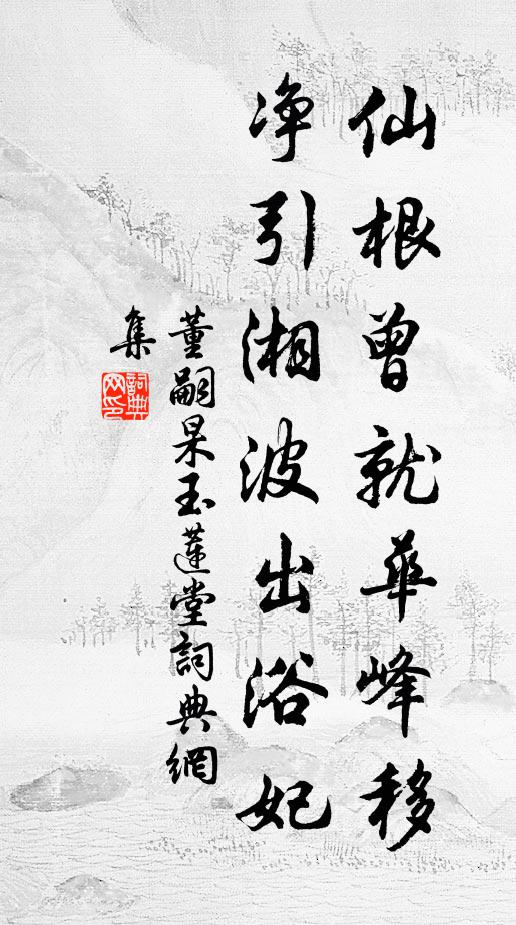 仙根曾就華峰移
净引湘波出浴妃
董嗣杲玉蓮堂詞典網
集
詞典網印